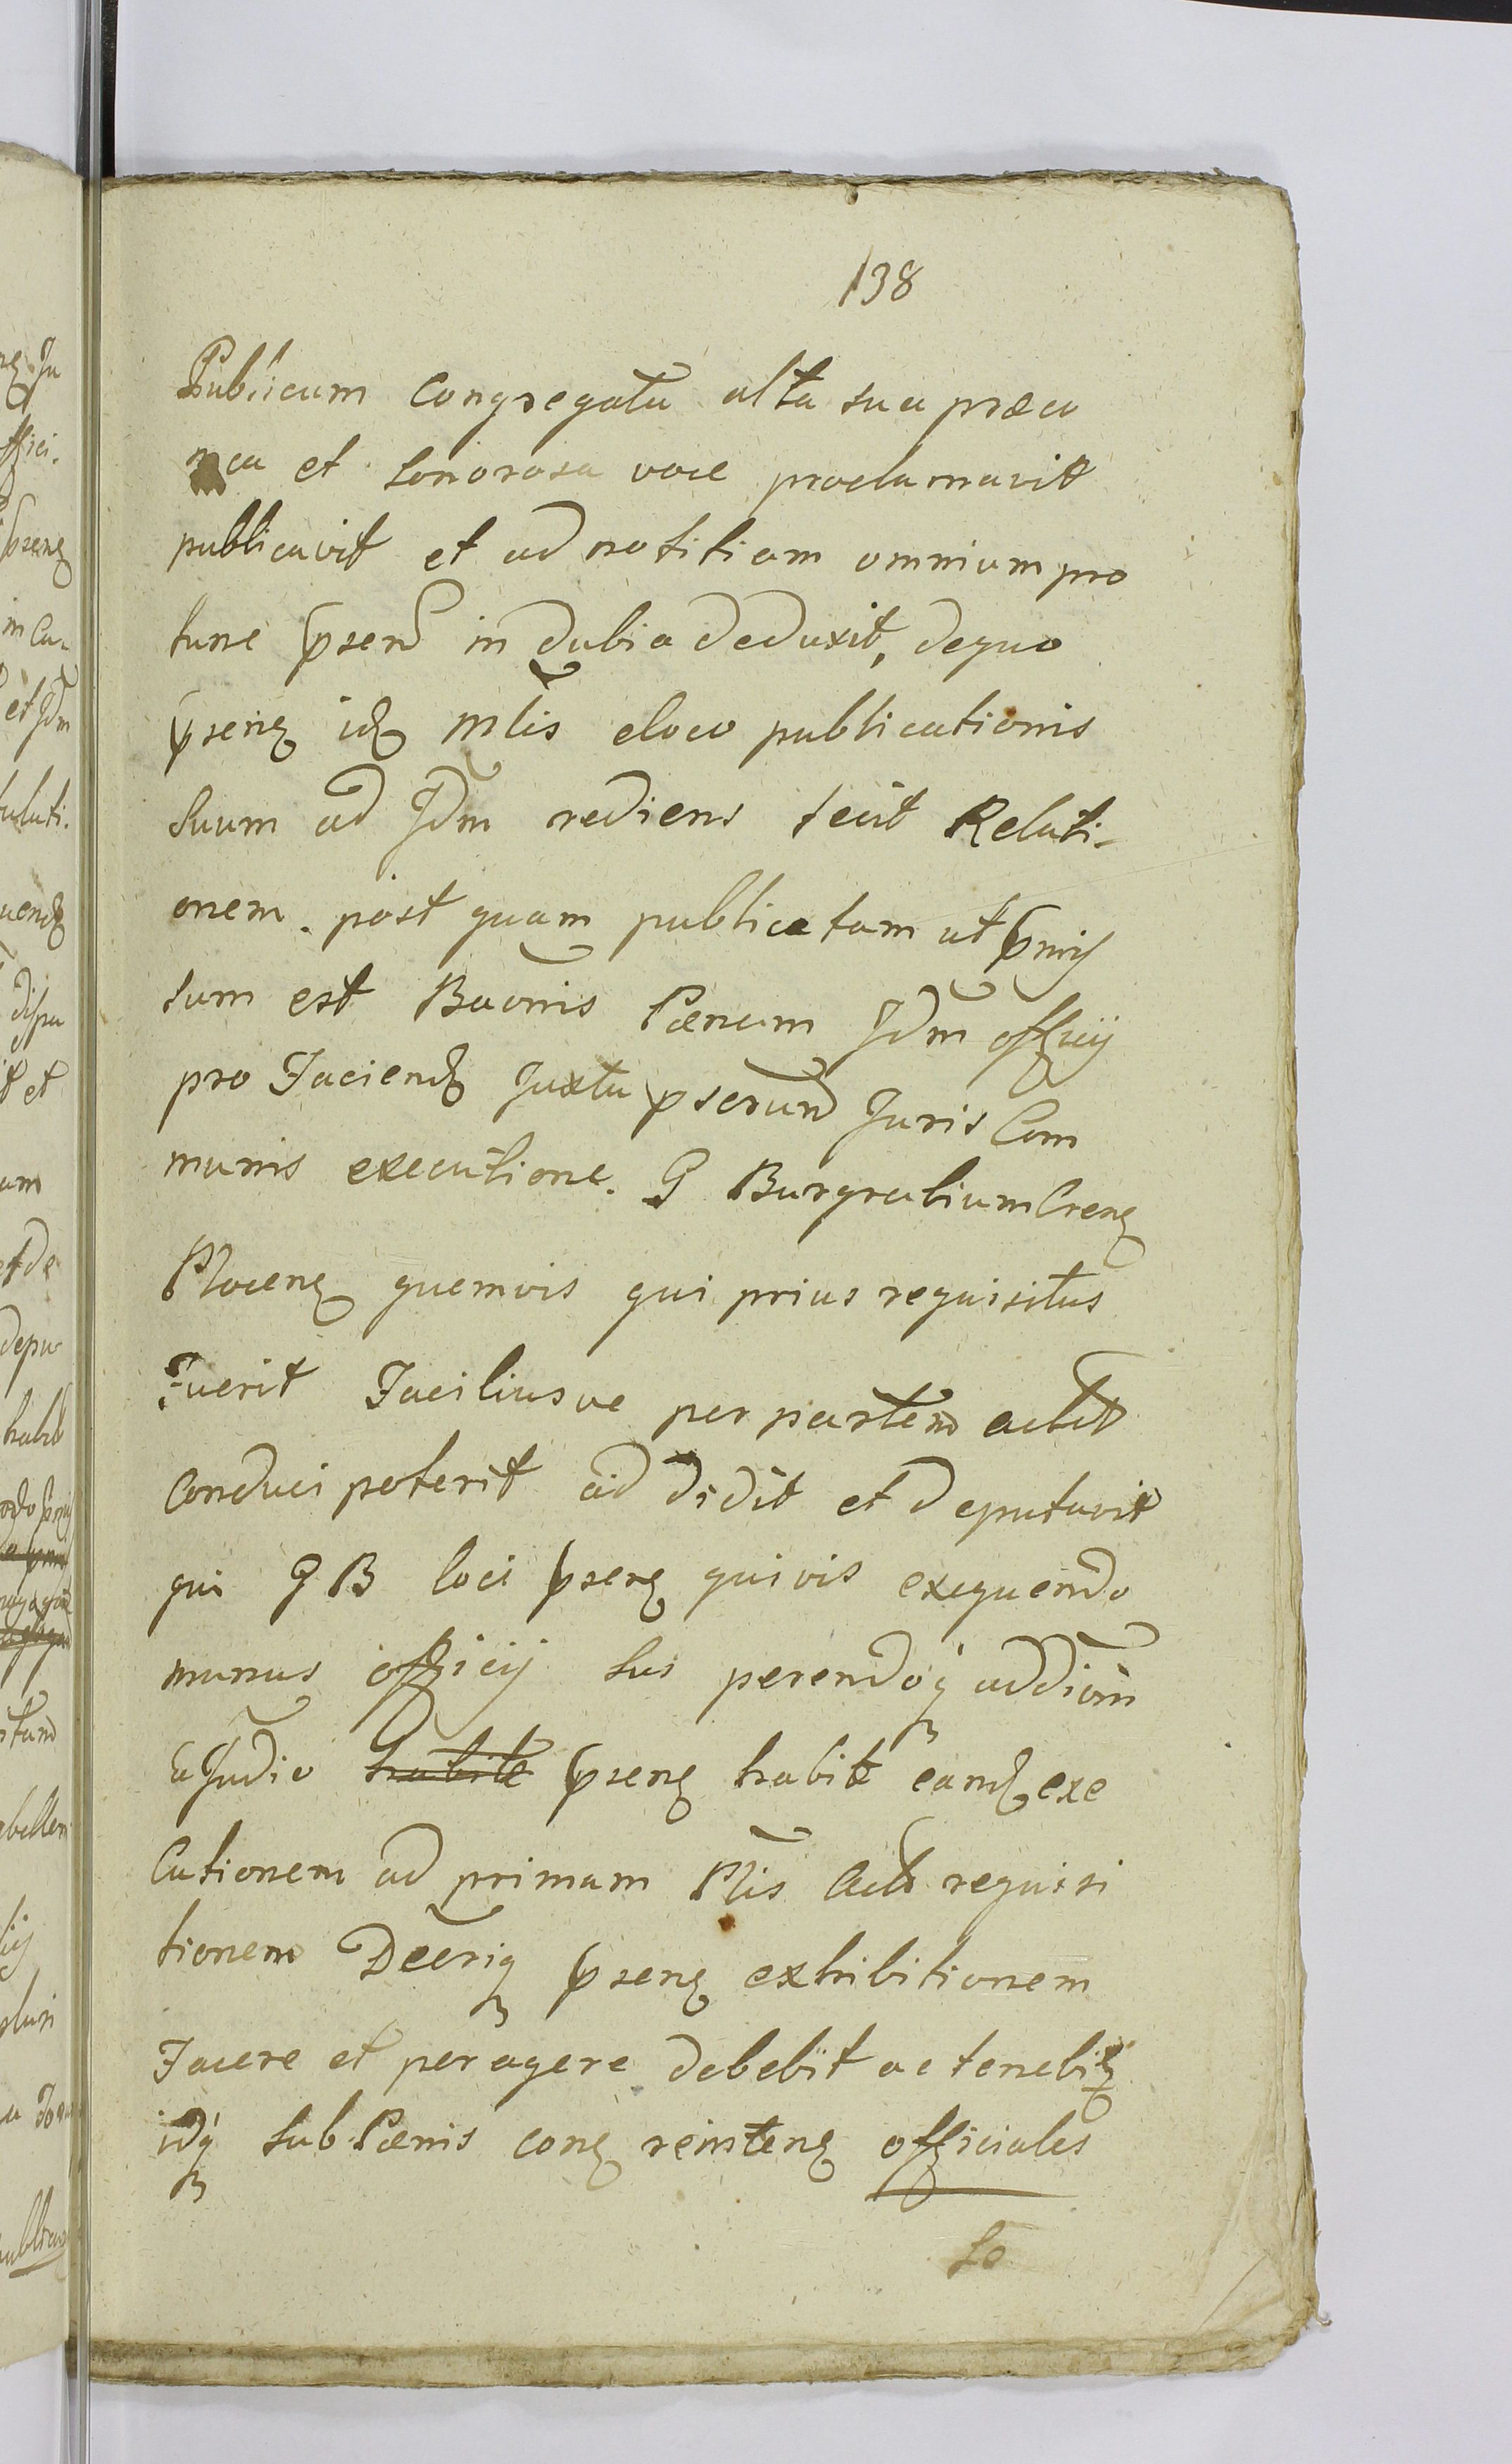 138
Publicum Congregatũ alta sua præco
nea et sonorosa voce proclamavit
publicavit et ad notitiam omnium pro
tunc pseñ in dubia deduxit, dequo
pseng idẽ Mlis eloco publicationis
suum ad Jdm rediens fecit Relati-
onem. post quam publicatam ut pmis
sum est Baonis Pœnam Jdm officij
pro Faciend Juxta pserũ Juris Com
munis executione. G Burgrabium Creng
Ploceng quemvis qui prius requisitus
Fuerit Faciliusve per partem
Conduci poterit addidit et deputavit
qui G B loci pseng quivis exequendo
munus officij sui addiõni
habite pseng habit eand exe
Cutionem ad primam Ptis Act requisi
tionem Decriq pseng exhibitionem
Facere et peragere debebit ac tenebit
idq sub Pœnis cong reniteng officiales
So